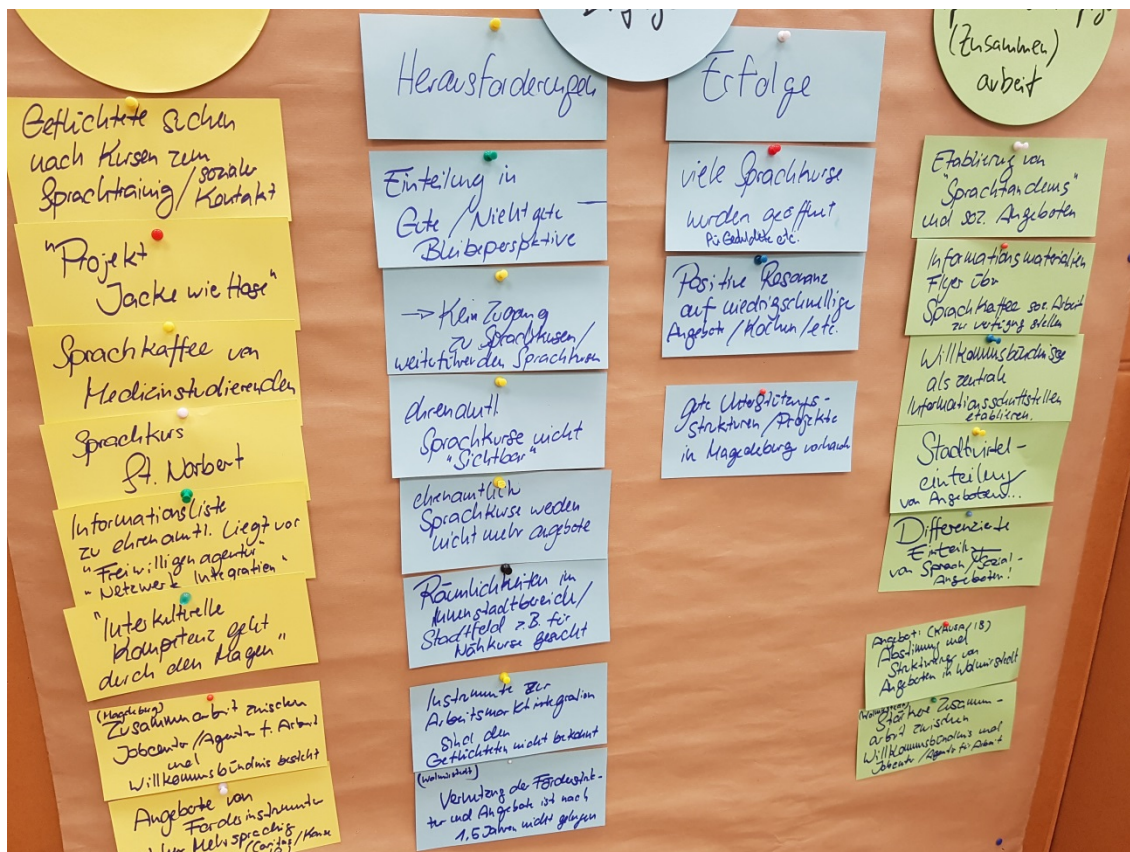 (Zusammen)
arbeit
Geflichtete suchen
nach Kursen zum
Sprachtraining/sozialer
Kontakt
"Projekt
Jacke wie Hose"
Sprachkaffee von
Medicinstudierenden
Sprachkurs
St. Norbert
Informationsliste
zu ehrenamtl. liegt vor
"Freiwilligenagentur"
"Netzwerk Integration"
"Interkulturelle
Kompetenz geht
durch den Magen"
(Magdeburg)
Zusammenarbeit zwischen
Jobcenter/Agentur f. Arbeit
und
Willkommensbündnis besteht
Angebote von
Förderinstrumenten
Mehrsprachig
(Caritas/
Herausforderungen
Einteilung in
Gute / Nicht gute
Bleibeperspektive
→ Kein Zugang
zu Sprachkursen/
weiterführenden Sprachkursen
ehrenamtl.
Sprachkurse nicht
"Sichtbar"
ehrenamtlich
Sprachkurse werden
nicht mehr angebote
Räumlichkeiten im
Innenstadtbereich/
Stadtfeld z.B. für
Nähkurse gesucht
Instrumente zur
Arbeitsmarktintegration
sind den
Geflichteten nicht bekannt
(Wolmirstedt)
Vernetzung der Förderstruk-
tur und Angebote ist nach
1,5 Jahren nicht gelungen
Erfolge
viele Sprachkurse
wurden geöffnet
für Geduldete etc.
Positive Resonanz
auf niedrigschwellige
Angebote/Kochen/etc.
gute Unterstützungs-
strukturen/Projekte
in Magedeburg vorhanden
Etablierung von
"Sprachtandems"
und soz. Angeboten
Informationsmaterialien
Flyer über
Sprachkaffee soz. Arbeit
zu verfügung stellen
Willkommsbündnisse
als zentrale
Informationsschnittstellen
etablieren.
Stadtviertel-
einteilung
von Angeboten...
Differenzierte
Einteilung
von Sprach/Sozial-
Angeboten!
Angebot: (KAUSA/IB)
Abstimmung und
Strukturierung von
Angeboten in Wolmirstedt
(Wolmirstedt)
Stärkere Zusammen-
arbeit zwischen
Willkommsbündnis und
Jobcenter/Agentur für Arbeit